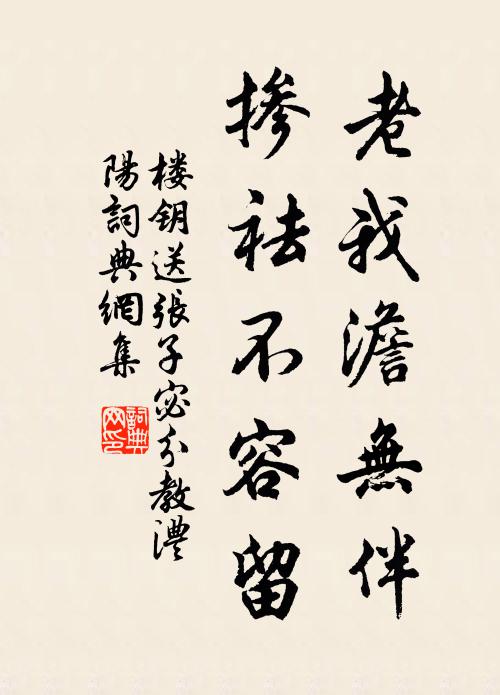 老我澹無伴
掺祛不容留
楼钥送張子宓分教澧
陽詞典網集
詞典
网印